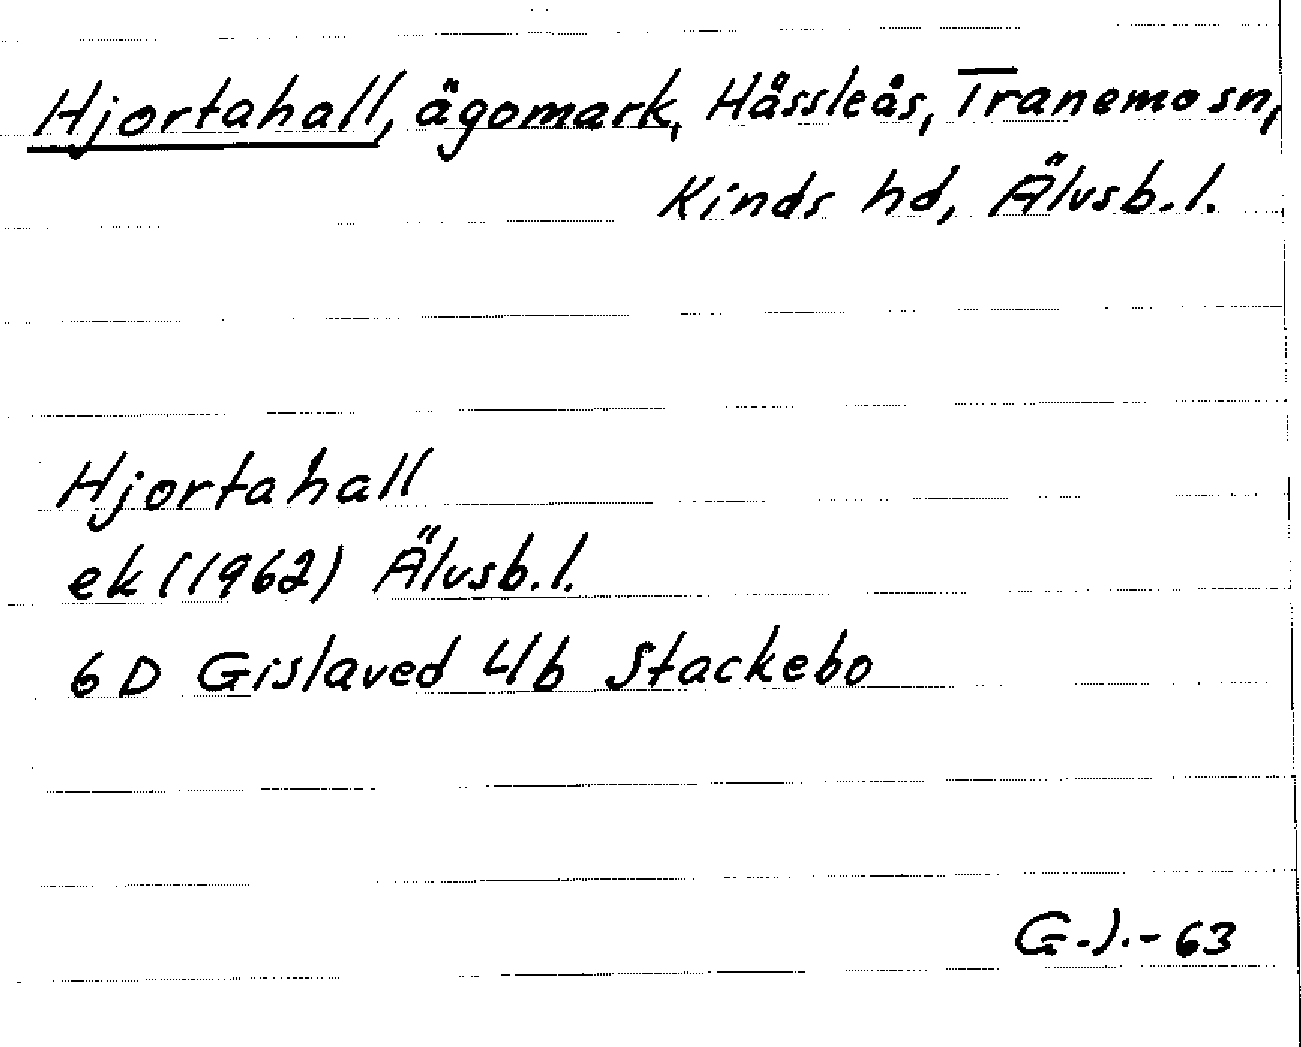 Hjortahall, ägomark, Håssleås, Tranemo sn,
Kinds hd, Älvsb.l.
Hjortahall
ek (1962) Älvsb.l.
6 D Gislaved 4/b Stackebo
G.J.-63